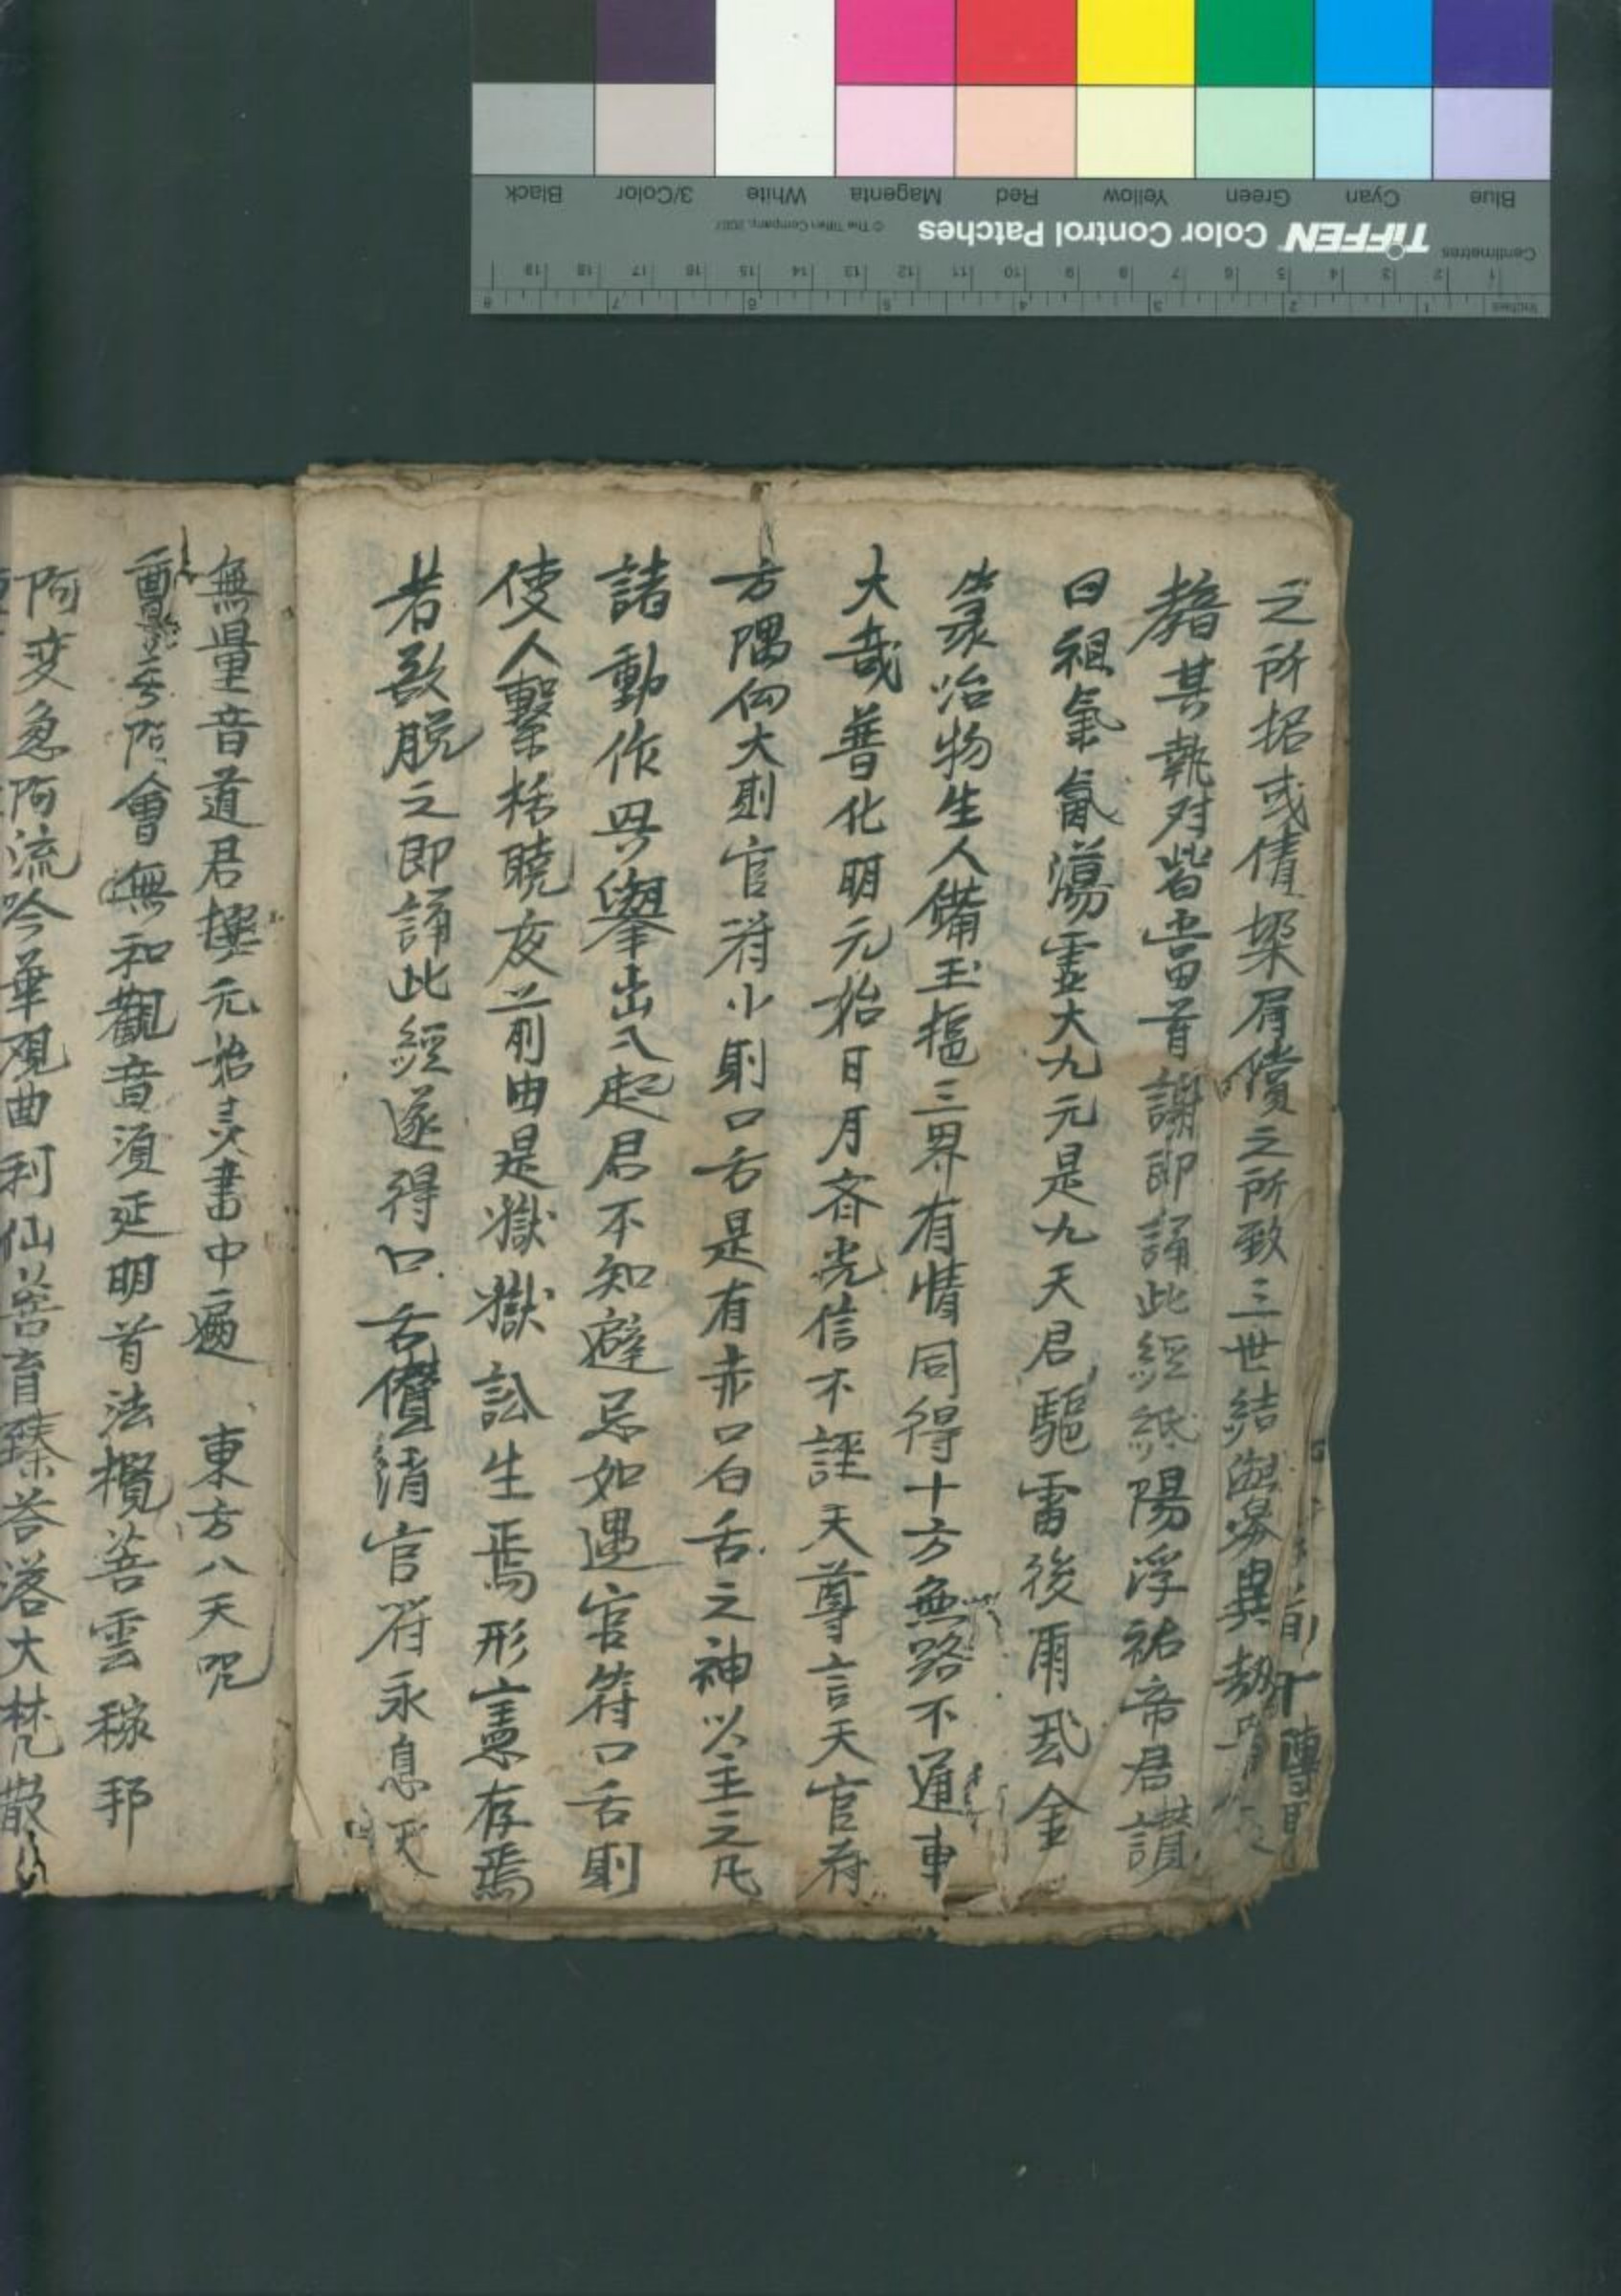 之所招或債梁屑償之所致三世結
其執对皆當首謝即誦此經紙陽浮祐帝君讃
曰祖氣氤蕩霊大九元是九天君驅雷後雨 金
冶物生人備玉摳三界有情同得十方無路不通車
大哉普化明元始日月斉光信不誣天尊言天官府
方隅向大則官符小則口舌是有赤口白舌之神以主之凡
諸動作興舉出入起君不知避忌如遇官符口舌則
使人繫括曉夜前由是獄獄訟生焉形憲存焉
若欲脱之即誦此經遂得口舌消官符永息天
無量音道君撰元始灵書中遍 東方八天呪
會無和觀音須延明首法欖菩雲稼邦
阿变急阿流吟華覌曲利仙菩育臻答落大梵散
Black
3/Color
White
Magenta
Red
Yellow
Green
Cyan
Blue
© The Tiffen Company, 2007
TIFFEN Color Control Patches
Centimetres
1 2 3 4 5 6 7 8 9 10 11 12 13 14 15 16 17 18 19
Inches
1 2 3 4 5 6 7 8